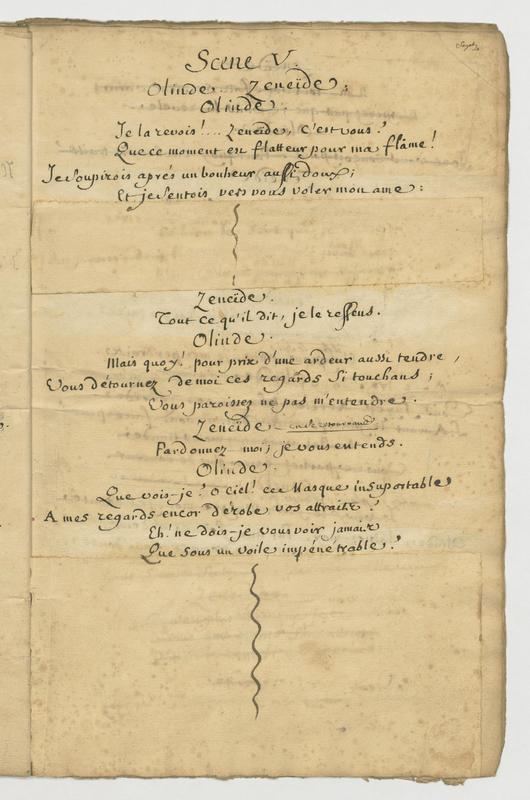 Scene V.
Olinde. Zeneïde.
Olinde.
Je la revois!... Zeneïde, c'est vous?
Que ce moment est flatteur pour ma flâme!
Je soupirois aprés un bonheur aussi doux;
Et je sentois vers vous voler mon ame:
Zeneïde.
Tout ce qu'il dit, je le ressens.
Olinde.
Mais quoy! pour prix d'une ardeur aussi tendre,
Vous détournez de moi ces regards si touchans;
Vous paroissez ne pas m'entendre.
Zeneïde.
Pardonnez moi; je vous entends.
Olinde.
Que vois-je? o Ciel! ce Masque insuportable
A mes regards encor dérobe vos attraits?
Eh! ne dois-je vous voir jamais
Que sous un voile impénétrable?